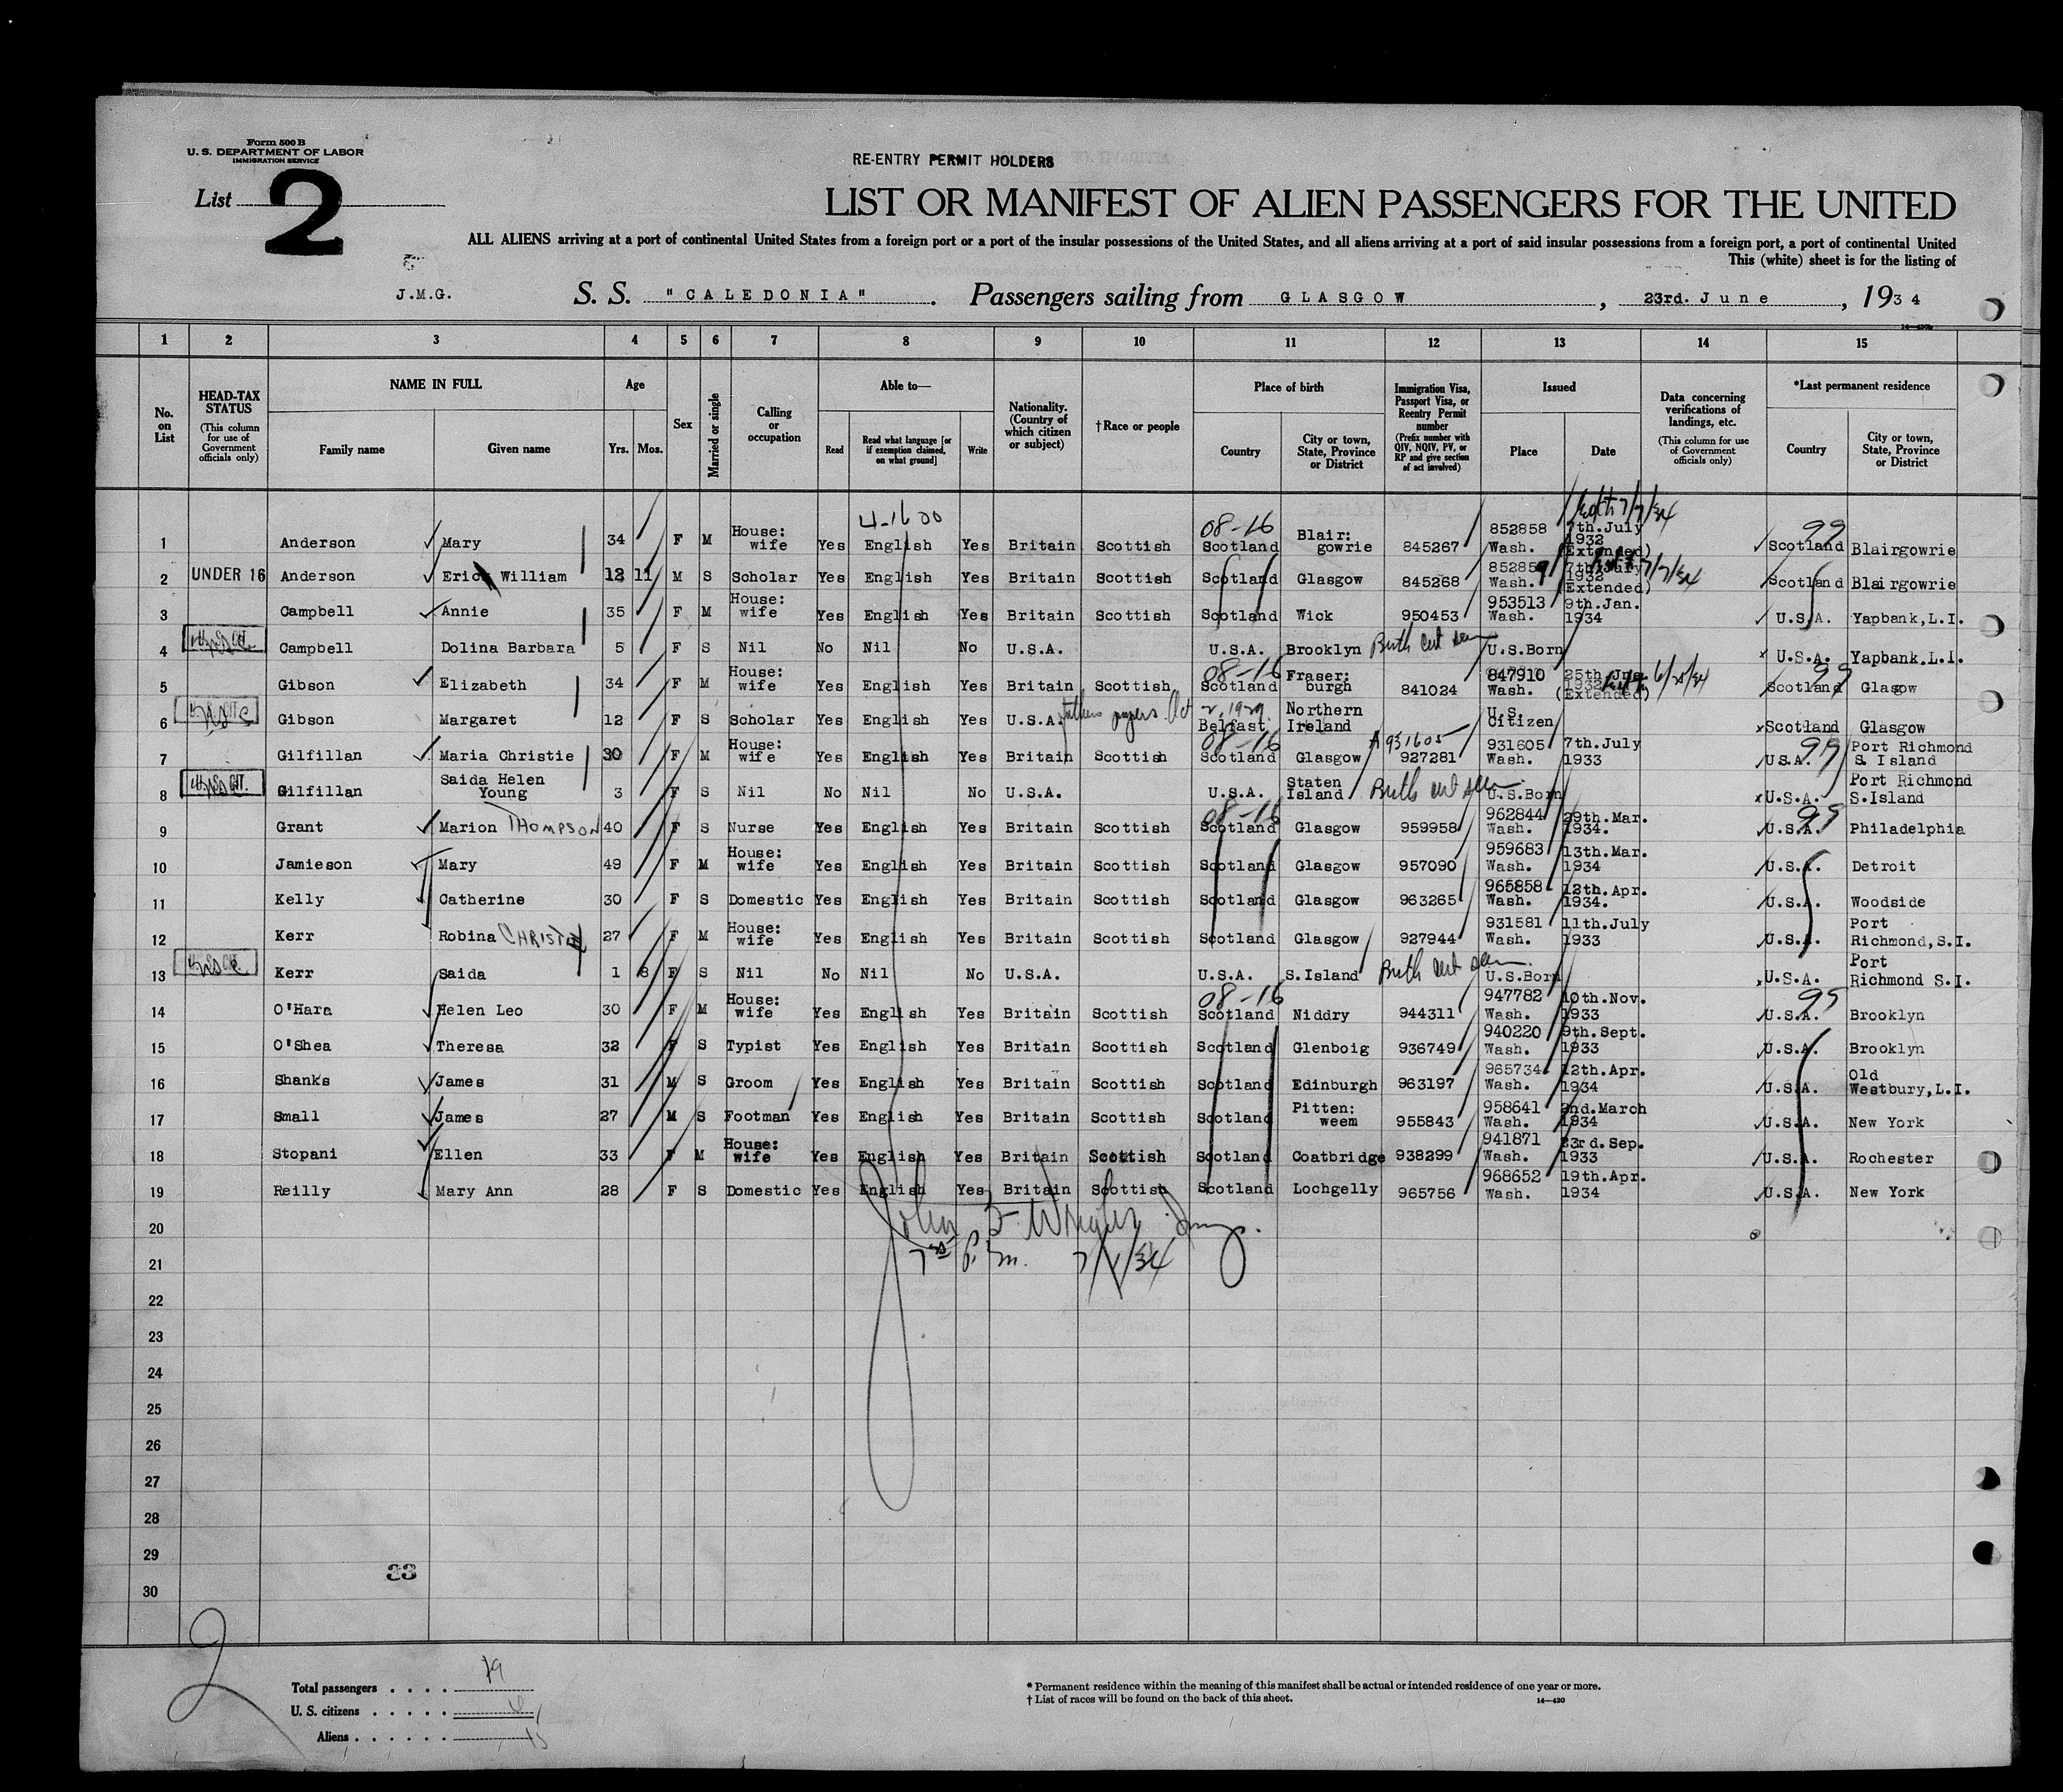 Form 500 B
U. S. DEPARTMENT OF LABOR
IMMIGRATION SERVICE
RE-ENTRY PERMIT HOLDERS
List 2
LIST OR MANIFEST OF ALIEN PASSENGERS FOR THE UNITED
ALL ALIENS arriving at a port of continental United States from a foreign port or a port of the insular possessions of the United States, and all aliens arriving at a port of said insular possessions from a foreign port, a port of continental United
This (white) sheet is for the listing of
J.M.G. S. S. "CALEDONIA". Passengers sailing from GLASGOW, 23rd. June, 1934
1 2 3 4 5 6 7 8 9 10 11 12 13 14 15
No. on List
HEAD-TAX STATUS (This column for use of Government officials only)
NAME IN FULL Family name Given name
Age Yrs. Mos.
Sex
Married or single
Calling or occupation
Able to— Read Read what language [or if exemption claimed, on what ground] Write
Nationality. (Country of which citizen or subject)
†Race or people
Place of birth Country City or town, State, Province or District
Immigration Visa, Passport Visa, or Reentry Permit number (Prefix number with QIV, NQIV, PV, or RP and give section of act involved)
Issued Place Date
Data concerning verifications of landings, etc. (This column for use of Government officials only)
*Last permanent residence Country City or town, State, Province or District
1 Anderson Mary 34 F M House: wife Yes English Yes Britain Scottish 08-16 Scotland Blair: gowrie 845267 852858 Wash. 7th.July 1932 (Extended) 7/7/34 99 Scotland Blairgowrie
2 UNDER 16 Anderson Eric William 12 11 M S Scholar Yes English Yes Britain Scottish Scotland Glasgow 845268 852859 Wash. 7th.July 1932 (Extended) 7/7/34 Scotland Blairgowrie
3 Campbell Annie 35 F M House: wife Yes English Yes Britain Scottish Scotland Wick 950453 953513 Wash. 9th.Jan. 1934 U.S.A. Yapbank,L.I.
4 Campbell Dolina Barbara 5 F S Nil No Nil No U.S.A. U.S.A. Brooklyn Birth cert seen U.S.Born U.S.A. Yapbank.L.I.
5 Gibson Elizabeth 34 F M House: wife Yes English Yes Britain Scottish 08-16 Scotland Fraser: burgh 841024 847910 Wash. 25th 1932 (Extended) 6/25/34 99 Scotland Glasgow
6 Gibson Margaret 12 F S Scholar Yes English Yes U.S.A. fathers papers Oct 2, 1929 Belfast Northern Ireland U.S. Citizen Scotland Glasgow
7 Gilfillan Maria Christie 30 F M House: wife Yes English Yes Britain Scottish 08-16 Scotland Glasgow A931605 927281 931605 Wash. 7th.July 1933 99 U.S.A. Port Richmond S. Island
8 Gilfillan Saida Helen Young 3 F S Nil No Nil No U.S.A. U.S.A. Staten Island Birth cert seen U.S.Born U.S.A. Port Richmond S.Island
9 Grant Marion THOMPSON 40 F S Nurse Yes English Yes Britain Scottish 08-16 Scotland Glasgow 959958 962844 Wash. 29th.Mar. 1934. 99 U.S.A. Philadelphia
10 Jamieson Mary 49 F M House: wife Yes English Yes Britain Scottish Scotland Glasgow 957090 959683 Wash. 13th.Mar. 1934 U.S.A. Detroit
11 Kelly Catherine 30 F S Domestic Yes English Yes Britain Scottish Scotland Glasgow 963265 965858 Wash. 12th.Apr. 1934. U.S.A. Woodside
12 Kerr Robina 27 F M House: wife Yes English Yes Britain Scottish Scotland Glasgow 927944 931581 Wash. 11th.July 1933 U.S.A. Port Richmond,S.I.
13 Kerr Saida 1 8 F S Nil No Nil No U.S.A. U.S.A. S.Island Birth cert seen U.S.Born U.S.A. Port Richmond S.I.
14 O'Hara Helen Leo 30 F M House: wife Yes English Yes Britain Scottish 08-16 Scotland Niddry 944311 947782 Wash. 10th.Nov. 1933 99 U.S.A. Brooklyn
15 O'Shea Theresa 32 F S Typist Yes English Yes Britain Scottish Scotland Glenboig 936749 940220 Wash. 9th.Sept. 1933 U.S.A. Brooklyn
16 Shanks James 31 M S Groom Yes English Yes Britain Scottish Scotland Edinburgh 963197 965734 Wash. 12th.Apr. 1934 U.S.A. Old Westbury,L.I.
17 Small James 27 M S Footman Yes English Yes Britain Scottish Scotland Pitten: weem 955843 958641 Wash. 2nd.March 1934 U.S.A. New York
18 Stopani Ellen 33 F M House: wife Yes English Yes Britain Scottish Scotland Coatbridge 938299 941871 Wash. 23rd.Sep. 1933 U.S.A. Rochester
19 Reilly Mary Ann 28 F S Domestic Yes English Yes Britain Scottish Scotland Lochgelly 965756 968652 Wash. 19th.Apr. 1934 U.S.A. New York
20
21
22
23
24
25
26
27
28
29
30
33
2
Total passengers . . . . 19
U. S. citizens . . . . .
Aliens . . . . . . 15
* Permanent residence within the meaning of this manifest shall be actual or intended residence of one year or more.
† List of races will be found on the back of this sheet. 14—430